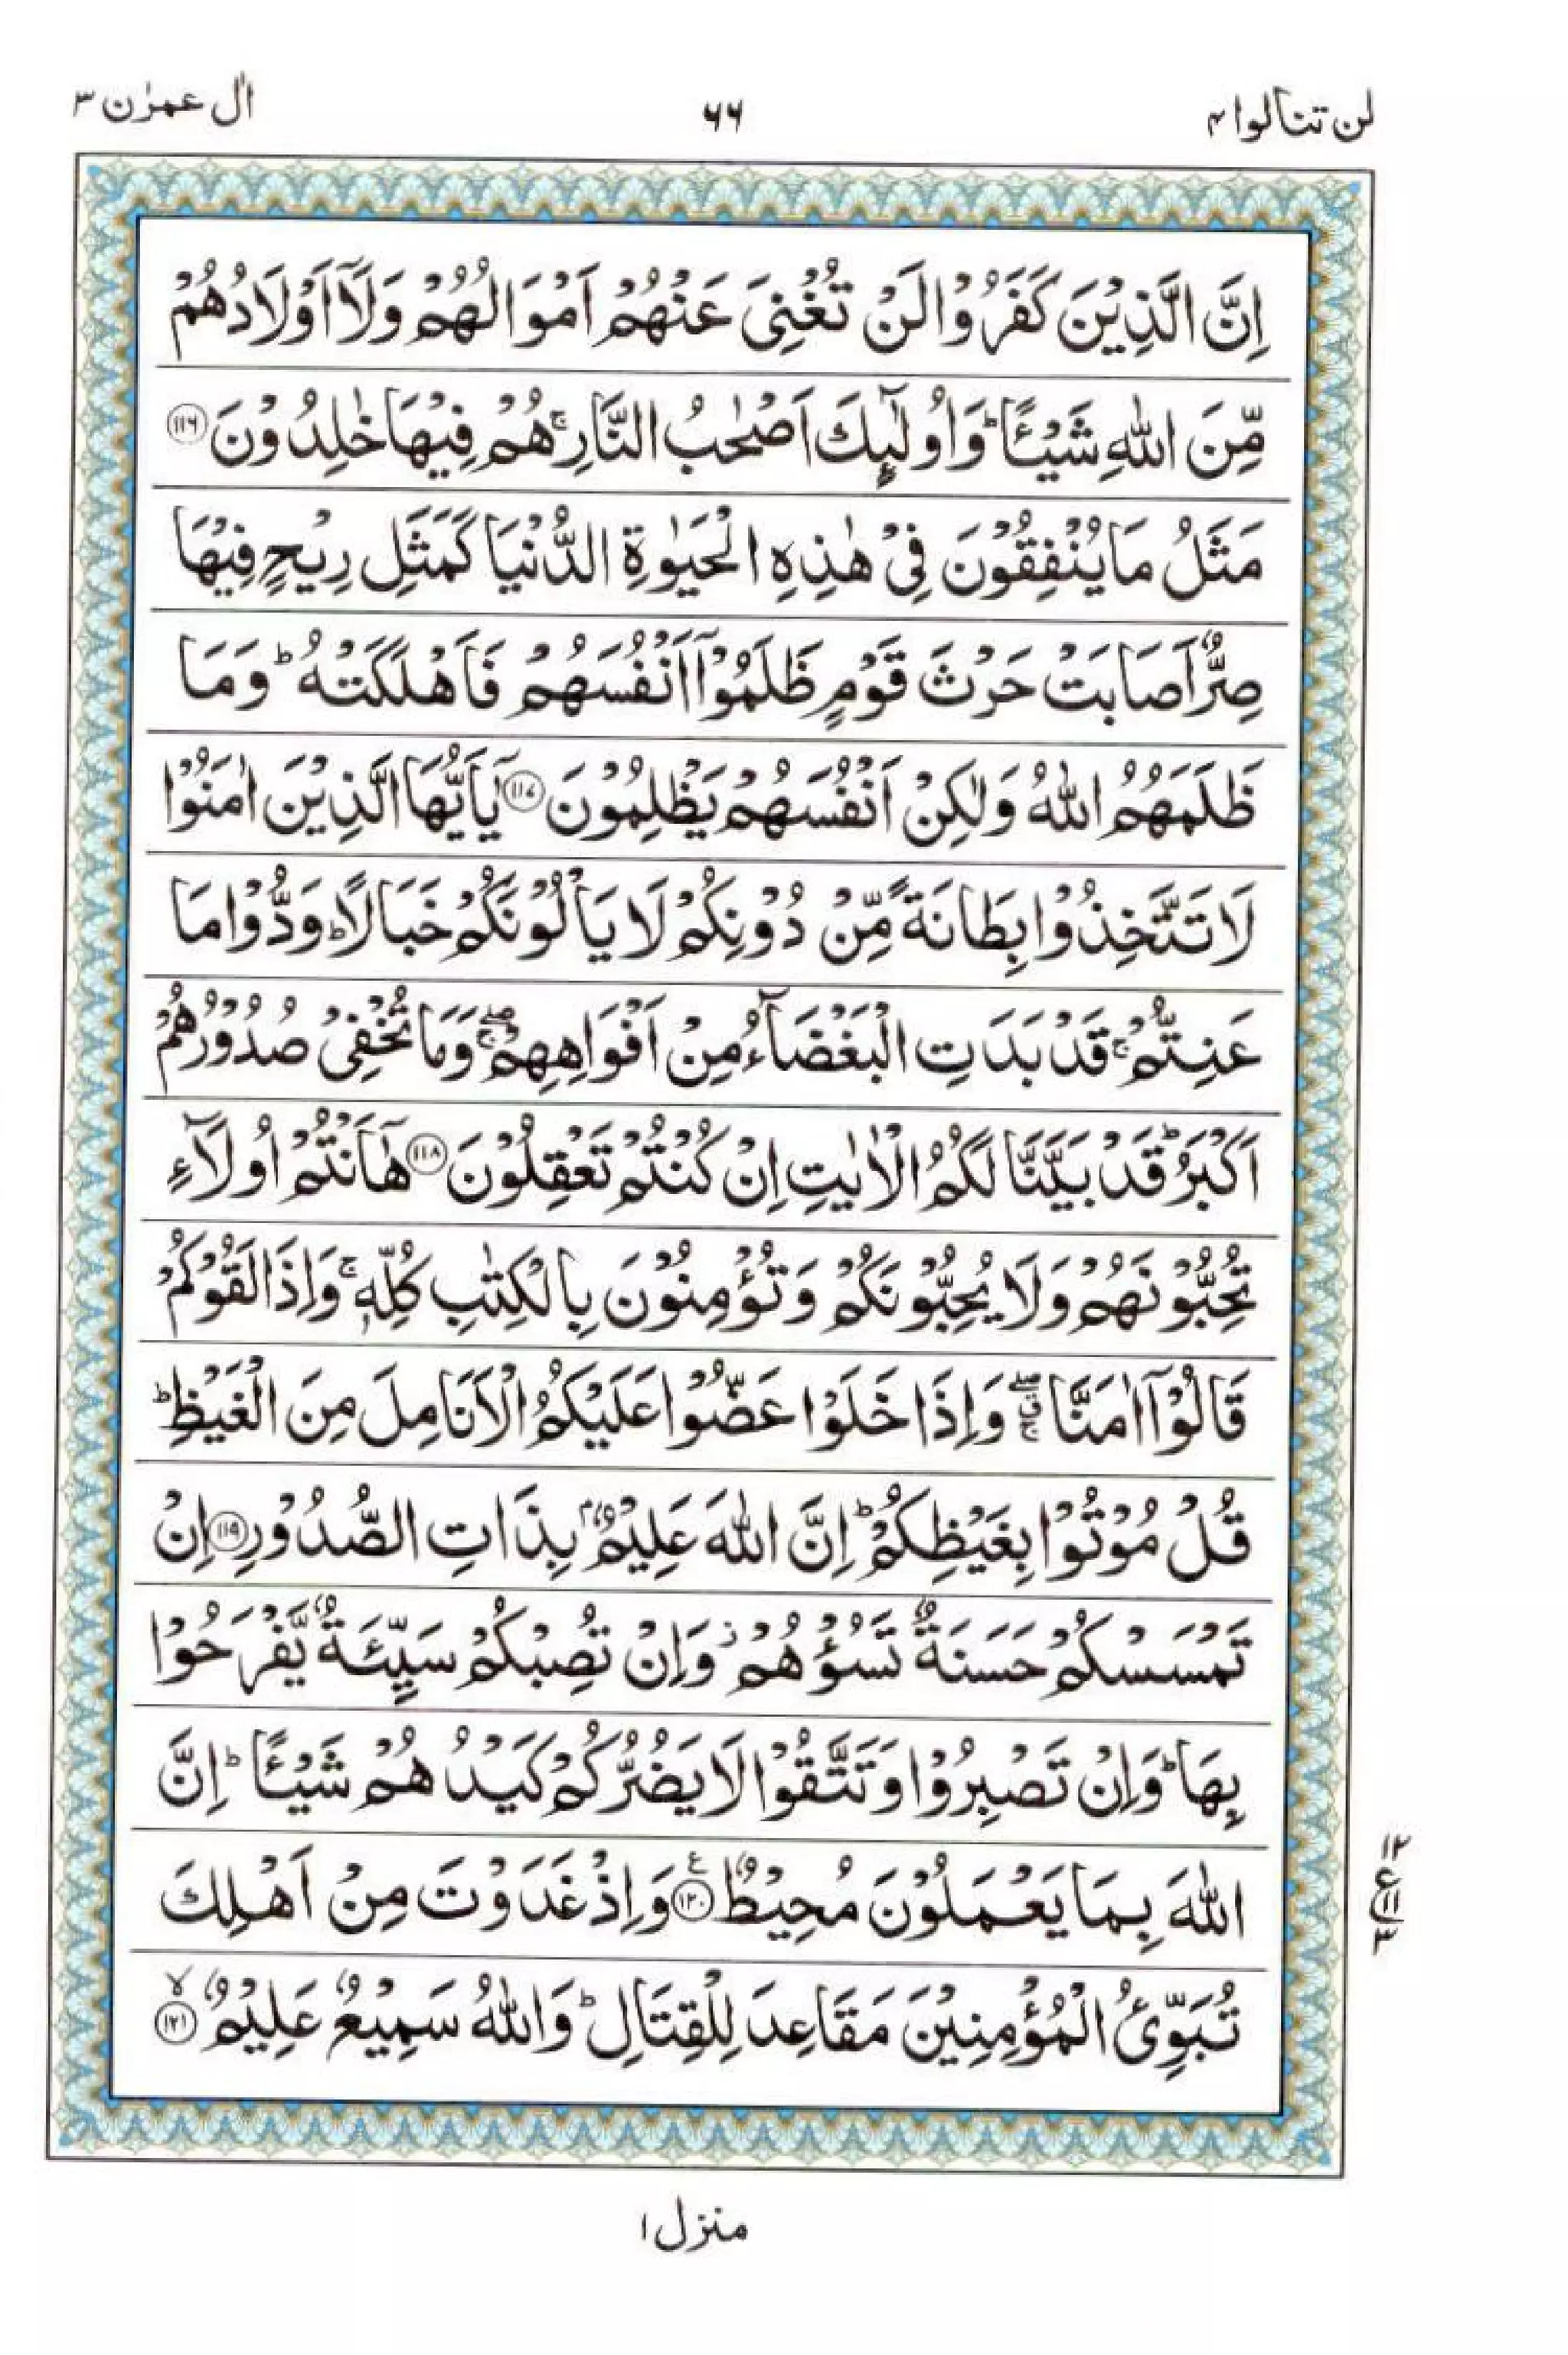 لن تنالوا ۴
۶۶
اٰل عمرٰن ۳
اِنَّ الَّذِيْنَ كَفَرُوْا لَنْ تُغْنِيَ عَنْهُمْ اَمْوَالُهُمْ وَلَآ اَوْلَادُهُمْ
مِّنَ اللّٰهِ شَيْـًٔا ؕ وَاُولٰٓئِكَ اَصْحٰبُ النَّارِ ۚ هُمْ فِيْهَا خٰلِدُوْنَ ﴿۱۱۶﴾
مَثَلُ مَا يُنْفِقُوْنَ فِيْ هٰذِهِ الْحَيٰوةِ الدُّنْيَا كَمَثَلِ رِيْحٍ فِيْهَا
صِرٌّ اَصَابَتْ حَرْثَ قَوْمٍ ظَلَمُوْٓا اَنْفُسَهُمْ فَاَهْلَكَتْهُ ؕ وَمَا
ظَلَمَهُمُ اللّٰهُ وَلٰكِنْ اَنْفُسَهُمْ يَظْلِمُوْنَ ﴿۱۱۷﴾ يٰٓاَيُّهَا الَّذِيْنَ اٰمَنُوْا
لَا تَتَّخِذُوْا بِطَانَةً مِّنْ دُوْنِكُمْ لَا يَاْلُوْنَكُمْ خَبَالًا ؕ وَدُّوْا مَا
عَنِتُّمْ ۚ قَدْ بَدَتِ الْبَغْضَآءُ مِنْ اَفْوَاهِهِمْ ۖۚ وَمَا تُخْفِيْ صُدُوْرُهُمْ
اَكْبَرُ ؕ قَدْ بَيَّنَّا لَكُمُ الْاٰيٰتِ اِنْ كُنْتُمْ تَعْقِلُوْنَ ﴿۱۱۸﴾ هٰٓاَنْتُمْ اُولَآءِ
تُحِبُّوْنَهُمْ وَلَا يُحِبُّوْنَكُمْ وَتُؤْمِنُوْنَ بِالْكِتٰبِ كُلِّهٖ ۚ وَاِذَا لَقُوْكُمْ
قَالُوْٓا اٰمَنَّا ۖۗۚ وَاِذَا خَلَوْا عَضُّوْا عَلَيْكُمُ الْاَنَامِلَ مِنَ الْغَيْظِ ؕ
قُلْ مُوْتُوْا بِغَيْظِكُمْ ؕ اِنَّ اللّٰهَ عَلِيْمٌۢ بِذَاتِ الصُّدُوْرِ ﴿۱۱۹﴾ اِنْ
تَمْسَسْكُمْ حَسَنَةٌ تَسُؤْهُمْ ؗ وَاِنْ تُصِبْكُمْ سَيِّئَةٌ يَّفْرَحُوْا
بِهَا ؕ وَاِنْ تَصْبِرُوْا وَتَتَّقُوْا لَا يَضُرُّكُمْ كَيْدُهُمْ شَيْـًٔا ؕ اِنَّ
اللّٰهَ بِمَا يَعْمَلُوْنَ مُحِيْطٌ ﴿۱۲۰﴾ ع وَاِذْ غَدَوْتَ مِنْ اَهْلِكَ
تُبَوِّئُ الْمُؤْمِنِيْنَ مَقَاعِدَ لِلْقِتَالِ ؕ وَاللّٰهُ سَمِيْعٌ عَلِيْمٌ ﴿۱۲۱﴾ ۙ
۱۲
ع ۱۱
۳
منزل ۱